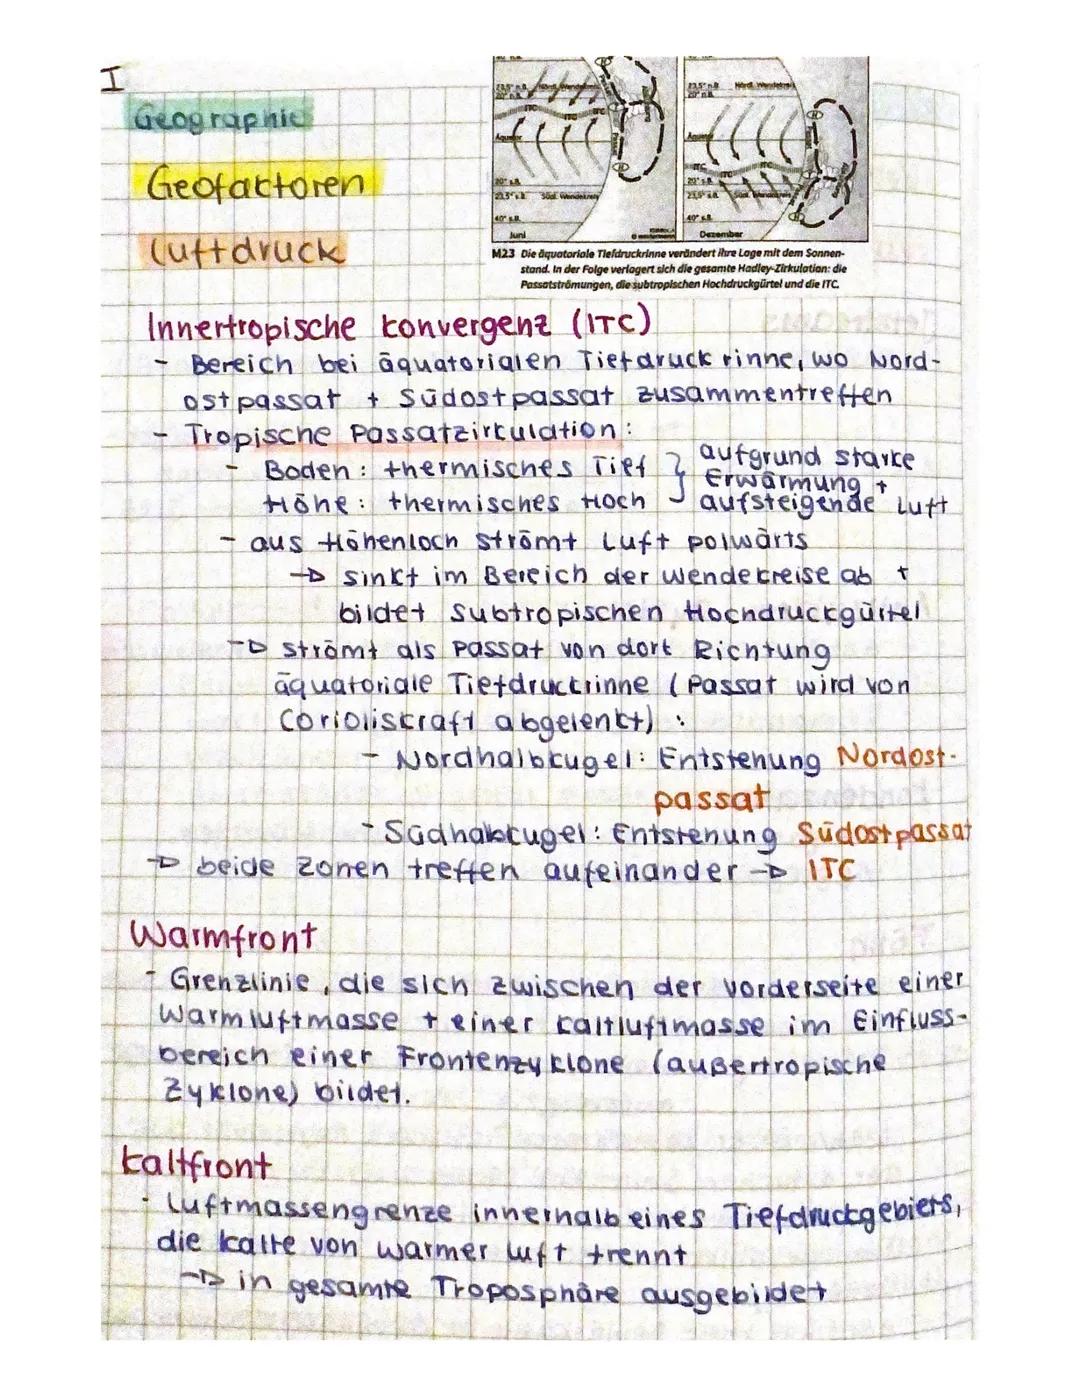 I
Geographie
Geofaktoren
Luftdruck
23,5° n.B. Nördl. Wendekreis
20° n.B.
ITC
ITC
ITC
Äquator
20° s.B.
23,5° s.B. Südl. Wendekreis
40° s.B.
Juni
23,5° n.B. Nördl. Wendekreis
20° n.B.
Äquator
ITC
ITC
ITC
20° s.B.
23,5° s.B. Südl. Wendekreis
40° s.B.
Dezember
M23 Die äquatoriale Tiefdruckrinne verändert ihre Lage mit dem Sonnen-
stand. In der Folge verlagert sich die gesamte Hadley-Zirkulation: die
Passatströmungen, die subtropischen Hochdruckgürtel und die ITC.
Innertropische Konvergenz (ITC)
- Bereich bei äquatorialen Tiefdruckrinne, wo Nord-
ostpassat + Südostpassat zusammentreffen
- Tropische Passatzirkulation:
- Boden: thermisches Tief } aufgrund starke
Erwärmung +
Höhe: thermisches Hoch aufsteigende Luft
- aus Höhenloch strömt Luft polwärts
→ sinkt im Bereich der Wendekreise ab +
bildet Subtropischen Hochdruckgürtel
→ strömt als Passat von dort Richtung
äquatoriale Tiefdruckrinne (Passat wird von
Corioliskraft abgelenkt):
- Nordhalbkugel: Entstehung Nordost-
passat
- Südhabkugel: Entstehung Südostpassat
→ beide Zonen treffen aufeinander → ITC
Warmfront
- Grenzlinie, die sich zwischen der Vorderseite einer
Warmluftmasse + einer Kaltluftmasse im Einfluss-
bereich einer Frontenzyklone (außertropische
Zyklone) bildet.
Kaltfront
- Luftmassengrenze innerhalb eines Tiefdruckgebiets,
die kalte von warmer Luft trennt
→ in gesamte Troposphäre ausgebildet